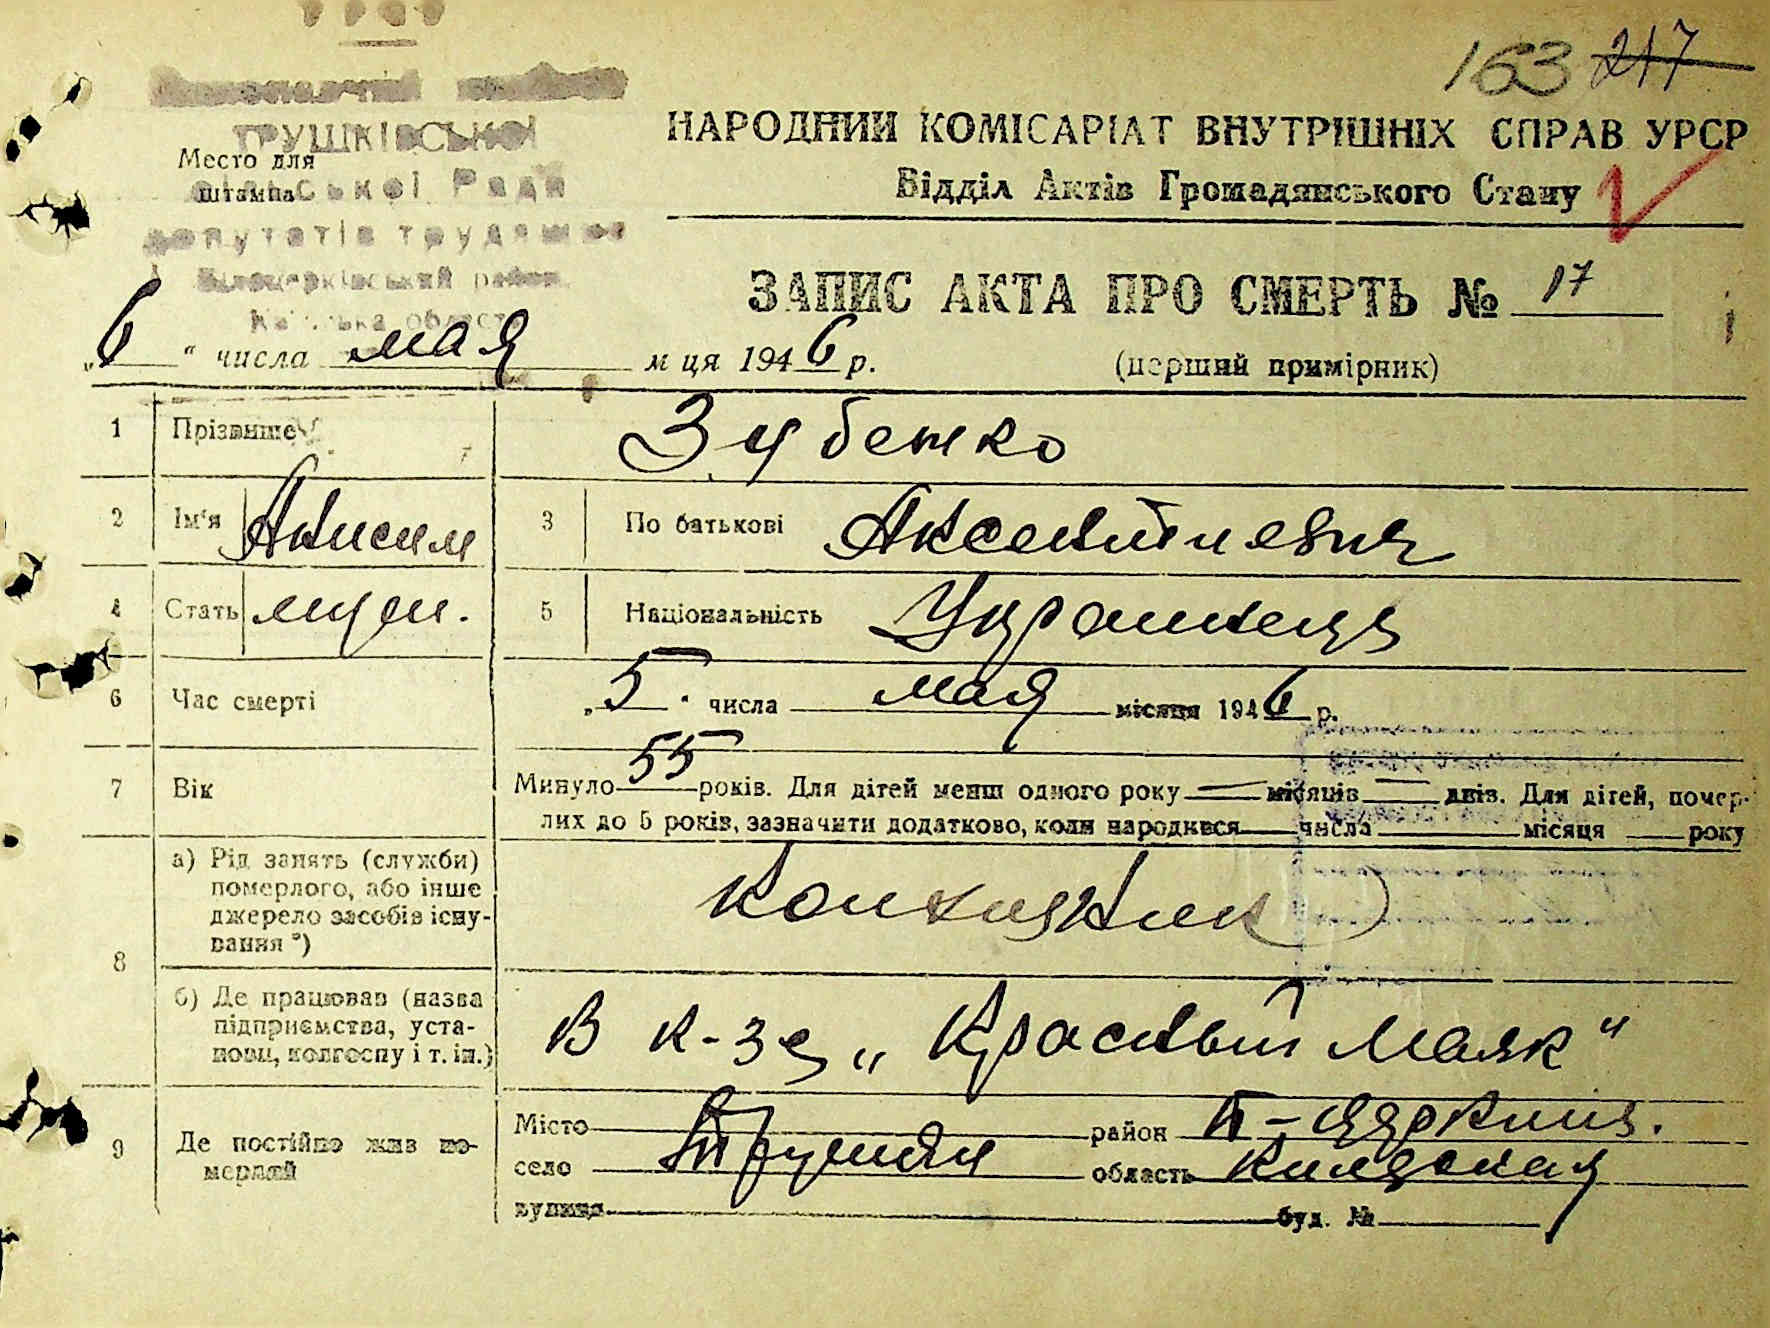 163 217
ТРУШКІВСЬКОЇ
Место для
штампа
сільської Ради
депутатів трудящих
Білоцерківський район
Київська область
НАРОДНИЙ КОМІСАРІАТ ВНУТРІШНІХ СПРАВ УРСР
Відділ Актів Громадянського Стану
ЗАПИС АКТА ПРО СМЕРТЬ № 17
„6“ числа мая м ця 1946 р. (перший примірник)
1 Прізвище Зубенко
2 Ім'я Анисим 3 По батькові Аксентиевич
4 Стать муж. 5 Національність Украинец
6 Час смерті „5" числа мая місяця 1946 р.
7 Вік Минуло 55 років. Для дітей менш одного року — місяців — днів. Для дітей, помер-
лих до 5 років, зазначити додатково, коли народився числа місяця року
8 а) Рід занять (служби)
померлого, або інше
джерело засобів існу-
вання *)
Колхозник
б) Де працював (назва
підприємства, уста-
нови, колгоспу і т. ін.)
В к-зе „Красный Маяк"
9 Де постійно жив по-
мерлий
Місто район Б-Церкжив.
село Трушки область Киевская
вулиця буд. №